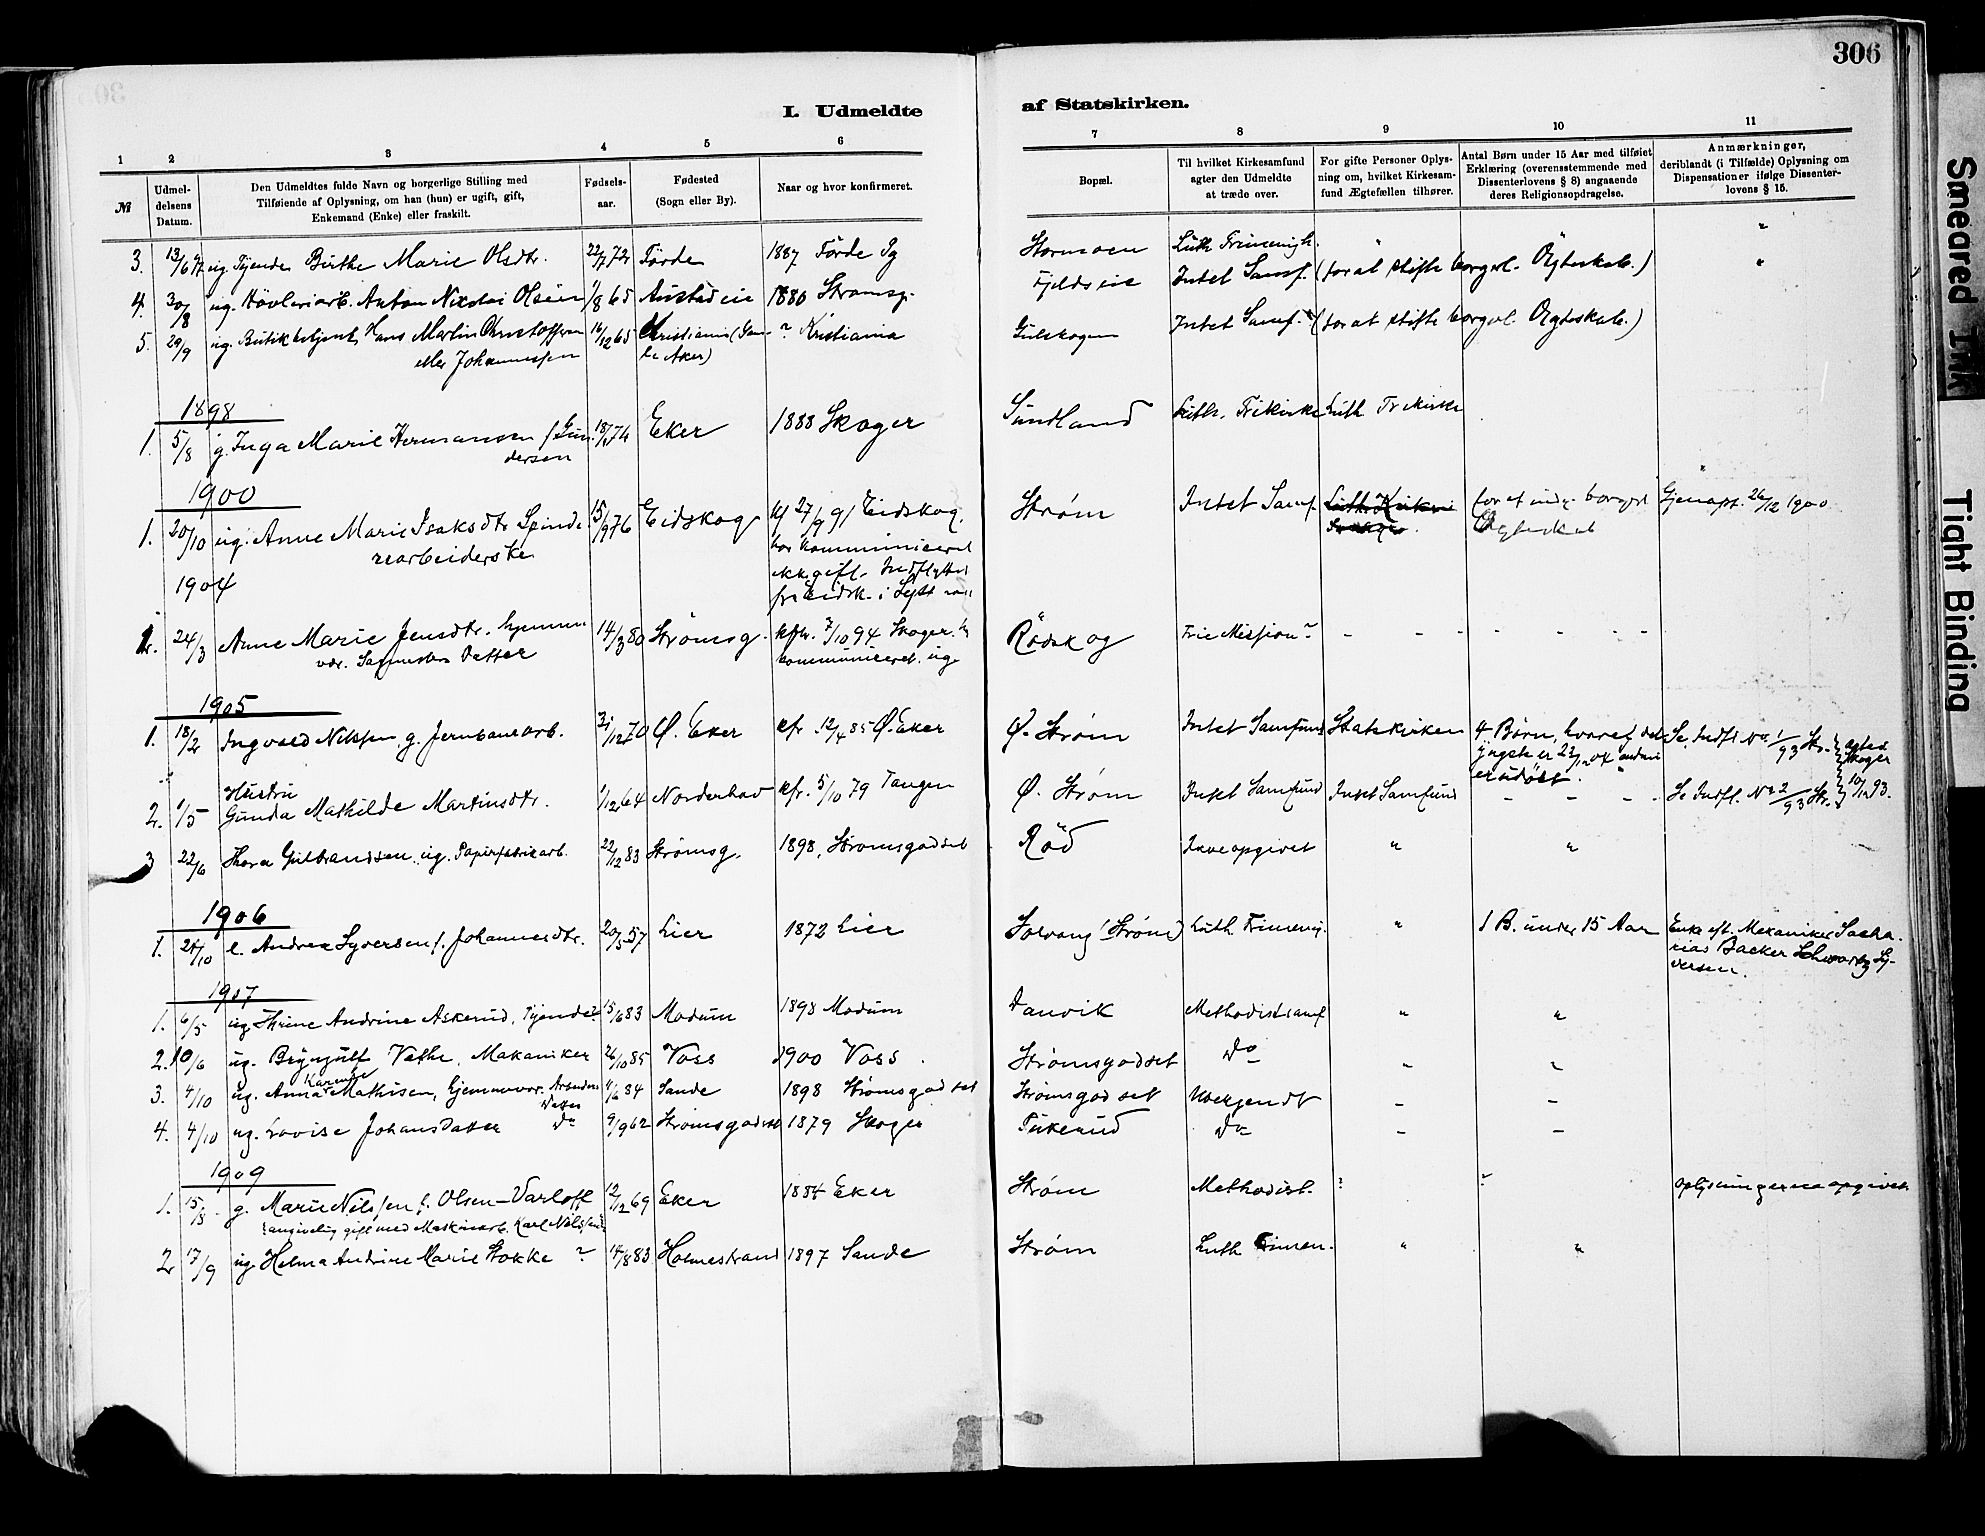 306
I. Udmeldte af Statskirken.
1 2 3 4 5 6 7 8 9 10 11
№
Udmel-
delsens
Datum.
Den Udmeldtes fulde Navn og borgerlige Stilling med
Tilføiende af Oplysning, om han (hun) er ugift, gift,
Enkemand (Enke) eller fraskilt.
Fødsels-
aar.
Fødested
(Sogn eller By).
Naar og hvor konfirmeret.
Bopæl.
Til hvilket Kirkesamfund
agter den Udmeldte
at træde over.
For gifte Personer Oplys-
ning om, hvilket Kirkesam-
fund Ægtefællen tilhører.
Antal Børn under 15 Aar med tilføiet
Erklæring (overensstemmende med
Dissenterlovens § 8) angaaende
deres Religionsopdragelse.
Anmærkninger,
deriblandt (i Tilfælde) Oplysning om
Dispensationer ifølge Dissenter-
lovens § 15.
3. 13/6 ug. Tjende Birthe Marie Olsdtr. 22/7 72 Förde 1887 Förde Stormoen Luth Frimenigh. "
4. 30/8 ug. Anton Nikolai Olsen 1/8 65 1880 Strømsg. Fjeldseie Intet Samf. (for at stifte borgerl. Ægteskab.) "
5. 29/9 ug. Butikbetjent Hans Martin Christoffersen 16/12 65 Christiania ? Kristiania Gulskogen Intet Samf. (for at stifte borgerl. Ægteskab.)
eller Johannessen Aker)
1898
1. 5/8 g. Inga Marie Hermansen f. Gun- 18/7 74 Eker 1888 Skoger Sundland Luth. Frikirke Luth Frikirke
dersen
1900
1. 20/10 ug. Anne Marie Isaksdtr Spinde- 15/9 76 Eidskog 27/9 91 Eidskog. Strøm Intet Samf. for at borgerl Gjenopt. 26/12 1900
rearbeiderske har kommuniceret Ægteskab
ikke gift. Indflyttet
fra Eidsk. i Sept
1904
1. 24/3 Anne Marie Jensdtr. hjemme- 14/3 80 Strømsg. kfr. 7/10 94 Skoger. Rødskog Frie Mission? - - - - - - -
vær. Datter kommuniceret. ug
1905
1. 18/2 Ingvald Nilssen g. Jernbanearb. 31/12 70 Ø. Eker kfr. 12/4 85 Ø. Eker Ø. Strøm Intet Samfund Statskirken 4 Børn, hvoraf det Se Indfl. No 1/93 Str.
yngste er 23/12 04
er udøbt. Skoger
2. 1/5 Hustru
Gunda Mathilde Martinsdtr. 1/12 64 Norderhov kfr. 5/10 79 Tangen Ø. Strøm Intet Samfund Intet Samfund - - - - Se Indfl. No 2/93 Str. 10/12 93.
3 22/6 Thora Gulbrandsen, ug. Papirfabrikarb. 22/12 83 Strømsg. 1898, Strømsgodset Rød Ikke opgivet " "
1906
1. 24/10 e. Andrea Syversen f. Johannesdtr. 20/5 57 Lier 1872 Lier Solvang (Strøm) Luth Frimenig. " 1 B. under 15 Aar Enke eft. Mekaniker Sacha-
rias Backer Schwartz Sy-
versen.
1907
1. 6/5 ug. Thrine Andrine Askerud, Tjende? 15/6 83 Modum 1898 Modum Danvik Methodistsamf " "
2. 10/6 ug. Brynjulf Vethe, Mekaniker 26/10 85 Voss 1900 Voss. Strømsgodset Do " "
3. 4/10 ug. Anna Karine Mathisen, Hjemmevær. Arbeider 4/6 84 Sande 1898 Strømsgodset Strømsgodset Uberjendt - -
Datter
4. 4/10 ug. Lovise JohansDatter Do 9/9 62 Strømsgodset 1879 Skoger Do - -
1909
1. 15/3 g. Marie Nilssen f. Olsen-Varloft 12/12 69 Eker 1884 Eker Strøm Methodist. ? - oplysninger ei opgivet
(angivelig gift med Maskinarb. Karl Nilssen)
2 17/9 ug. Helma Andrine Marie Stokke ? 14/8 83 Holmestrand 1897 Sande Strøm Luth Frimen. " "
Smeared Ink
Tight Binding